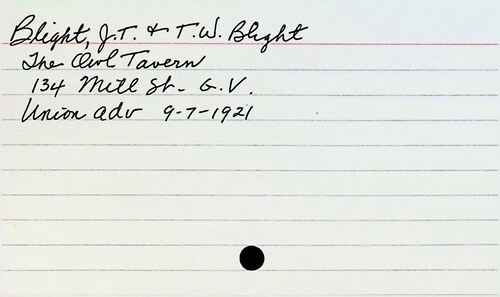 Blight, J.T. & T.W. Blight
The Owl Tavern
134 Mill St. G.V.
Union adv 9-7-1921